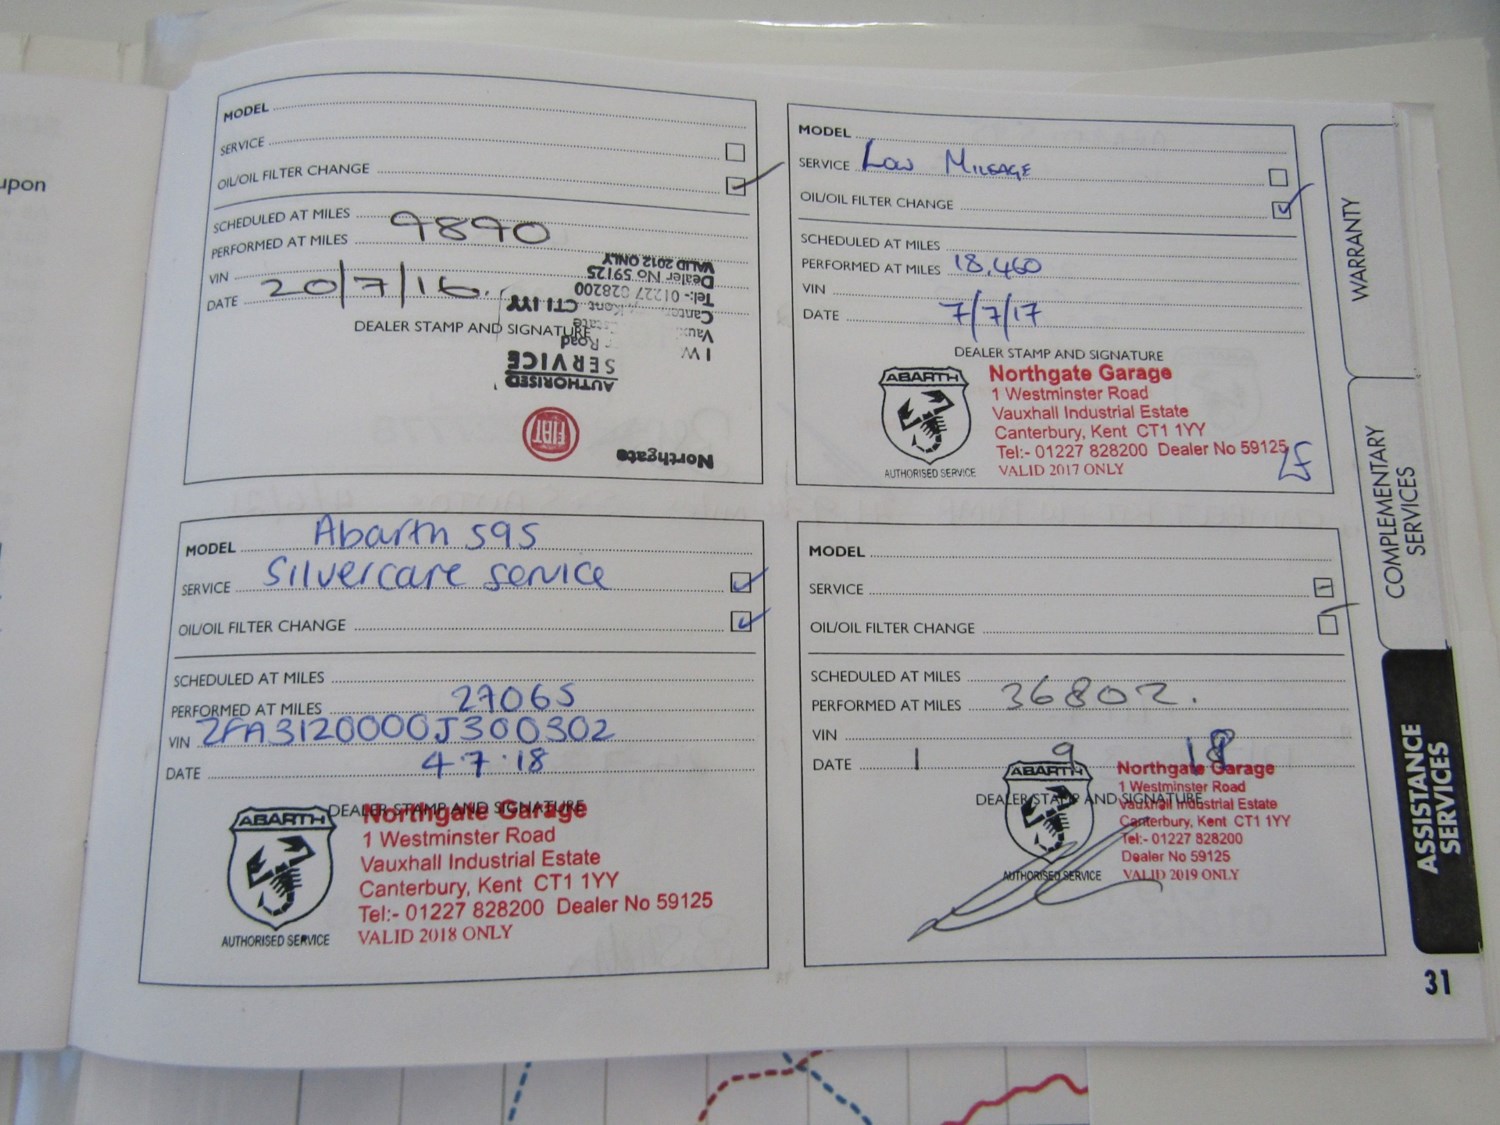 upon
MODEL
SERVICE
OIL/OIL FILTER CHANGE
SCHEDULED AT MILES
PERFORMED AT MILES 9890
VIN
DATE 20/7/16.
DEALER STAMP AND SIGNATURE
Northgate
FIAT
AUTHORISED
SERVICE
1 W Road
Vaux
Cante Kent CT1 1YY
Tel:- 01227 828200
Dealer No 59125
VALID 2012 ONLY
MODEL
SERVICE Low Mileage
OIL/OIL FILTER CHANGE
SCHEDULED AT MILES
PERFORMED AT MILES 18,460
VIN
DATE 7/7/17
DEALER STAMP AND SIGNATURE
ABARTH
AUTHORISED SERVICE
Northgate Garage
1 Westminster Road
Vauxhall Industrial Estate
Canterbury, Kent CT1 1YY
Tel:- 01227 828200 Dealer No 59125
VALID 2017 ONLY
MODEL Abarth 595
SERVICE Silvercare service
OIL/OIL FILTER CHANGE
SCHEDULED AT MILES
PERFORMED AT MILES 27065
VIN ZFA3120000J300302
DATE 4.7.18
DEALER STAMP AND SIGNATURE
ABARTH
AUTHORISED SERVICE
Northgate Garage
1 Westminster Road
Vauxhall Industrial Estate
Canterbury, Kent CT1 1YY
Tel:- 01227 828200 Dealer No 59125
VALID 2018 ONLY
MODEL
SERVICE
OIL/OIL FILTER CHANGE
SCHEDULED AT MILES
PERFORMED AT MILES 36802.
VIN
DATE 1 9
DEALER STAMP AND SIGNATURE
ABARTH
AUTHORISED SERVICE
Northgate Garage
1 Westminster Road
Vauxhall Industrial Estate
Canterbury, Kent CT1 1YY
Tel:- 01227 828200
Dealer No 59125
VALID 2019 ONLY
WARRANTY
COMPLEMENTARY
SERVICES
ASSISTANCE
SERVICES
31